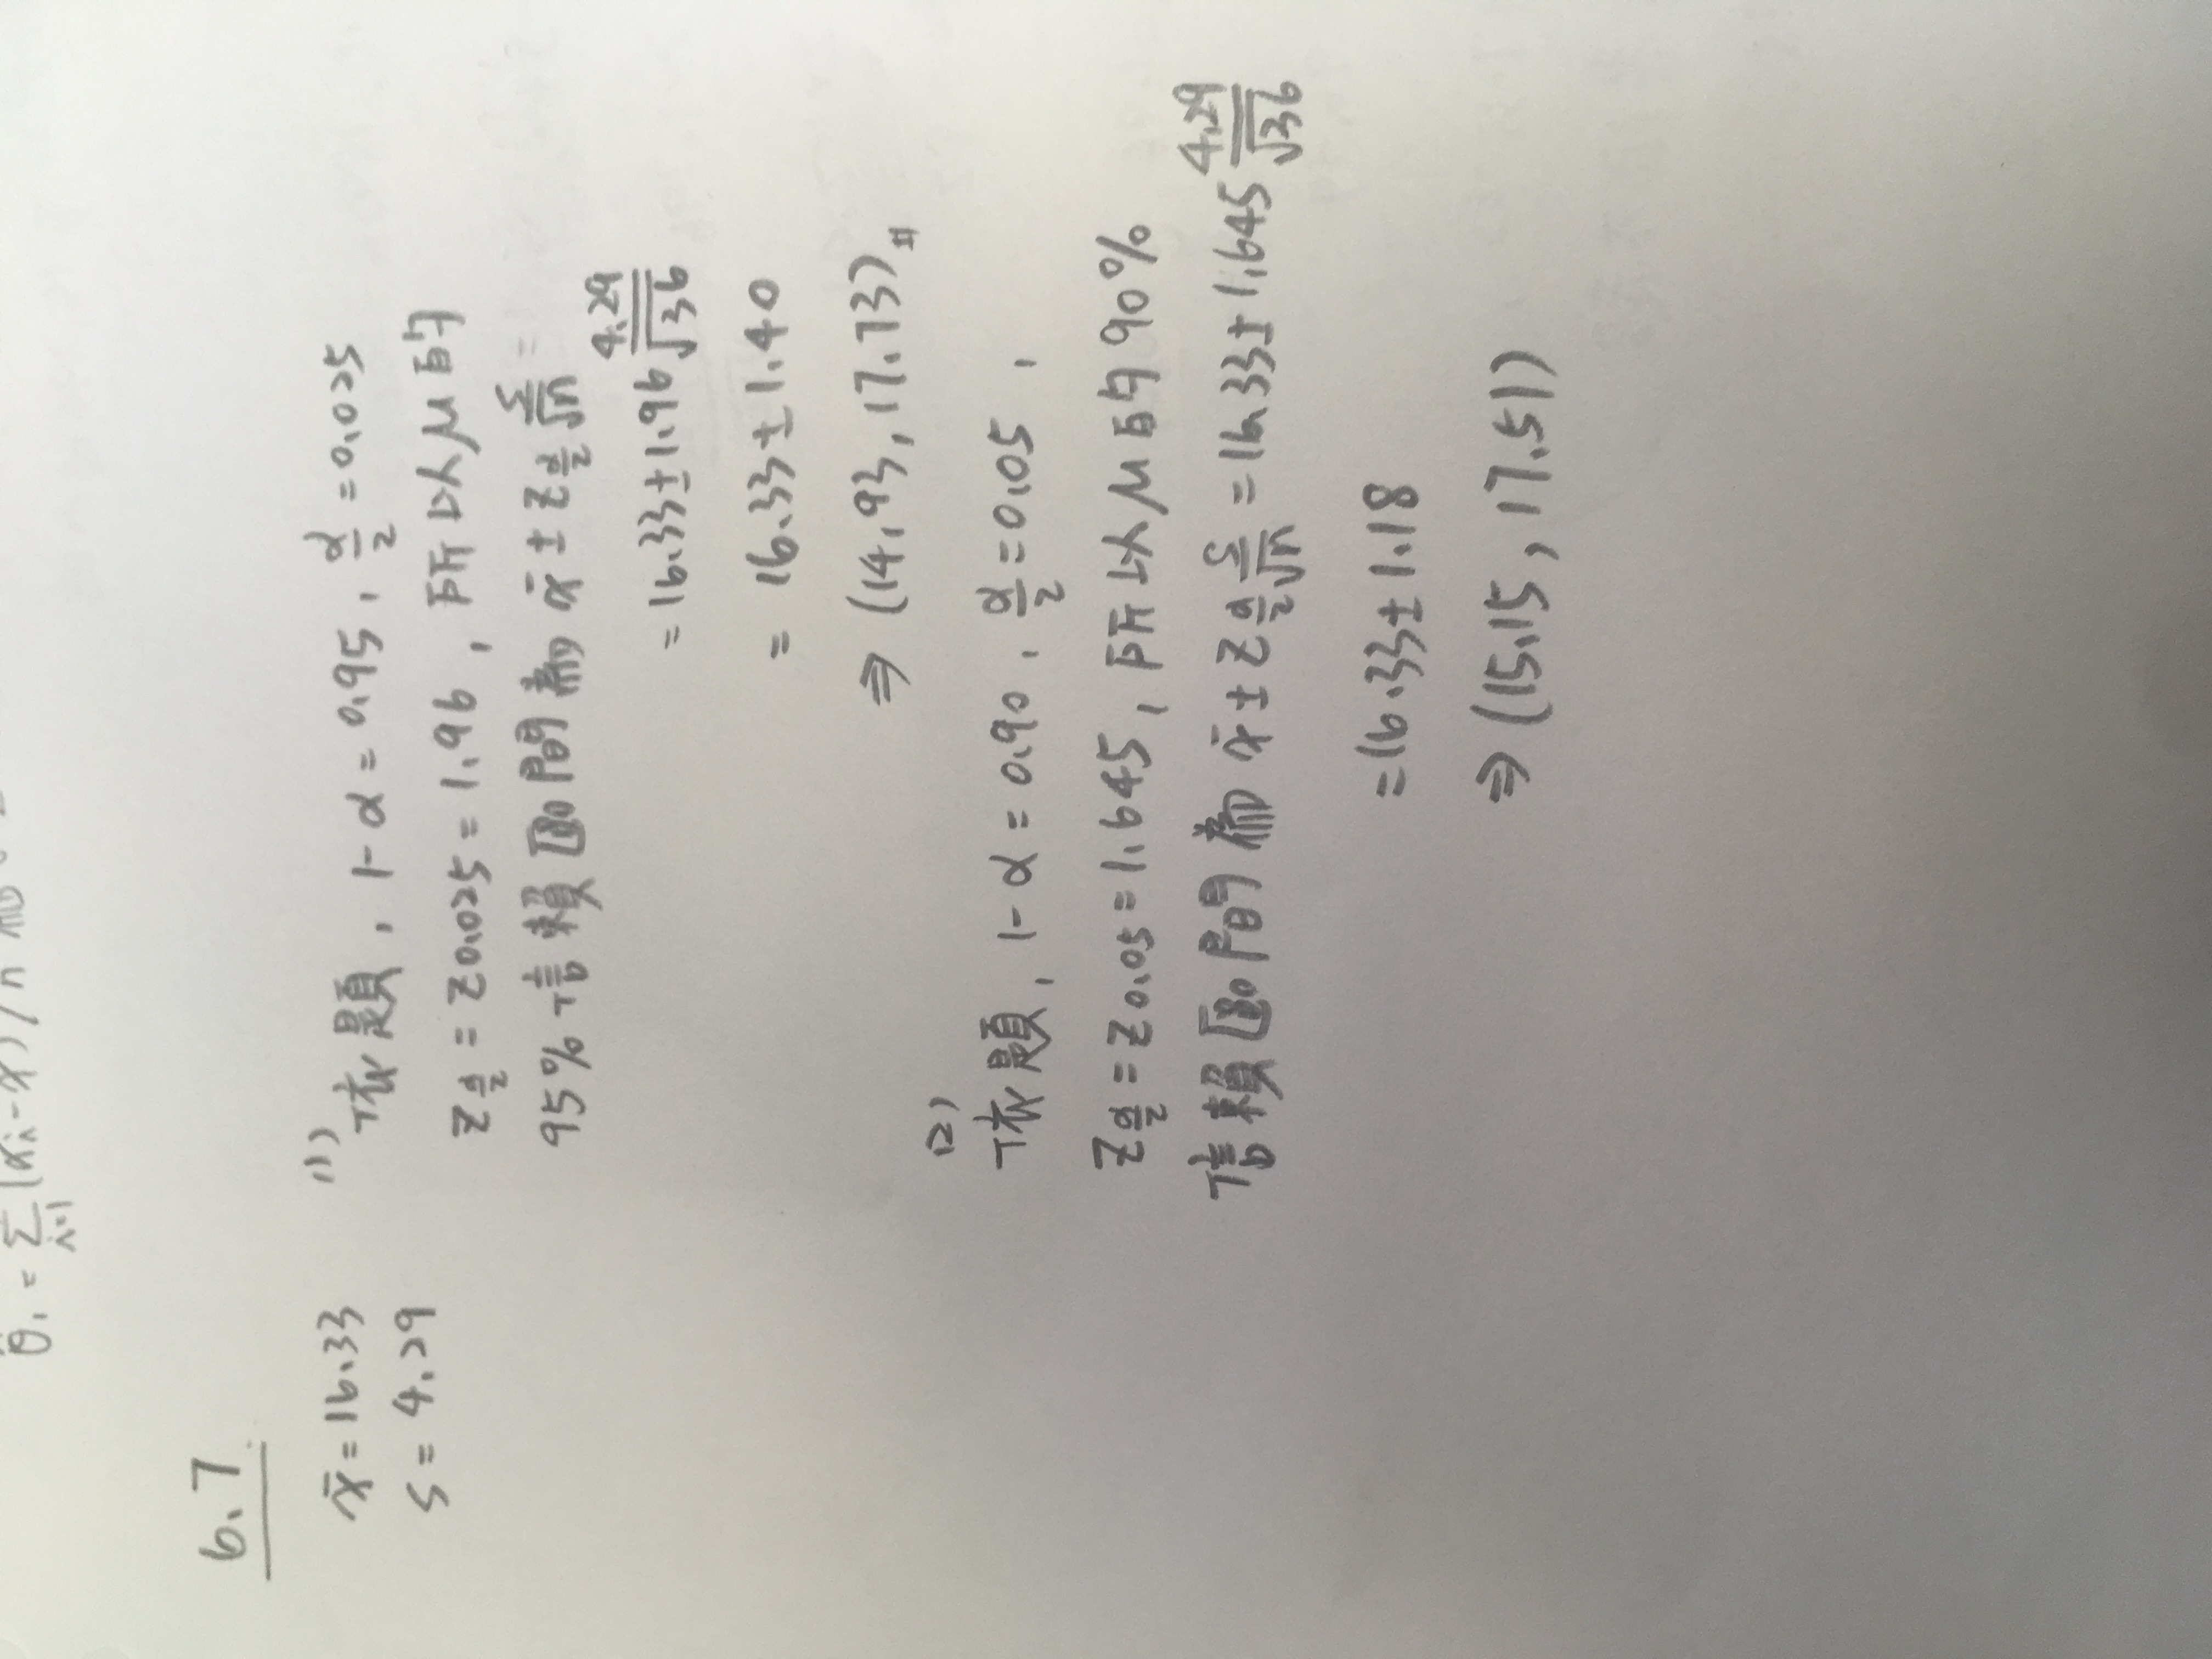 θ̂₁ = Σ_{i=1} (xᵢ-x̄) / n 為
6.7
x̄ = 16.33
s = 4.29
(1)
依題, 1-α = 0.95, α/2 = 0.025
z_{α/2} = z0.025 = 1.96, 所以μ的
95%信賴區間為 x̄ ± z_{α/2} s/√n =
= 16.33 ± 1.96 4.29/√36
= 16.33 ± 1.40
⇒ (14.93, 17.73)#
(2)
依題, 1-α = 0.90, α/2 = 0.05,
z_{α/2} = z0.05 = 1.645, 所以μ的90%
信賴區間為 x̄ ± z_{α/2} s/√n = 16.33 ± 1.645 4.29/√36
= 16.33 ± 1.18
⇒ (15.15, 17.51)